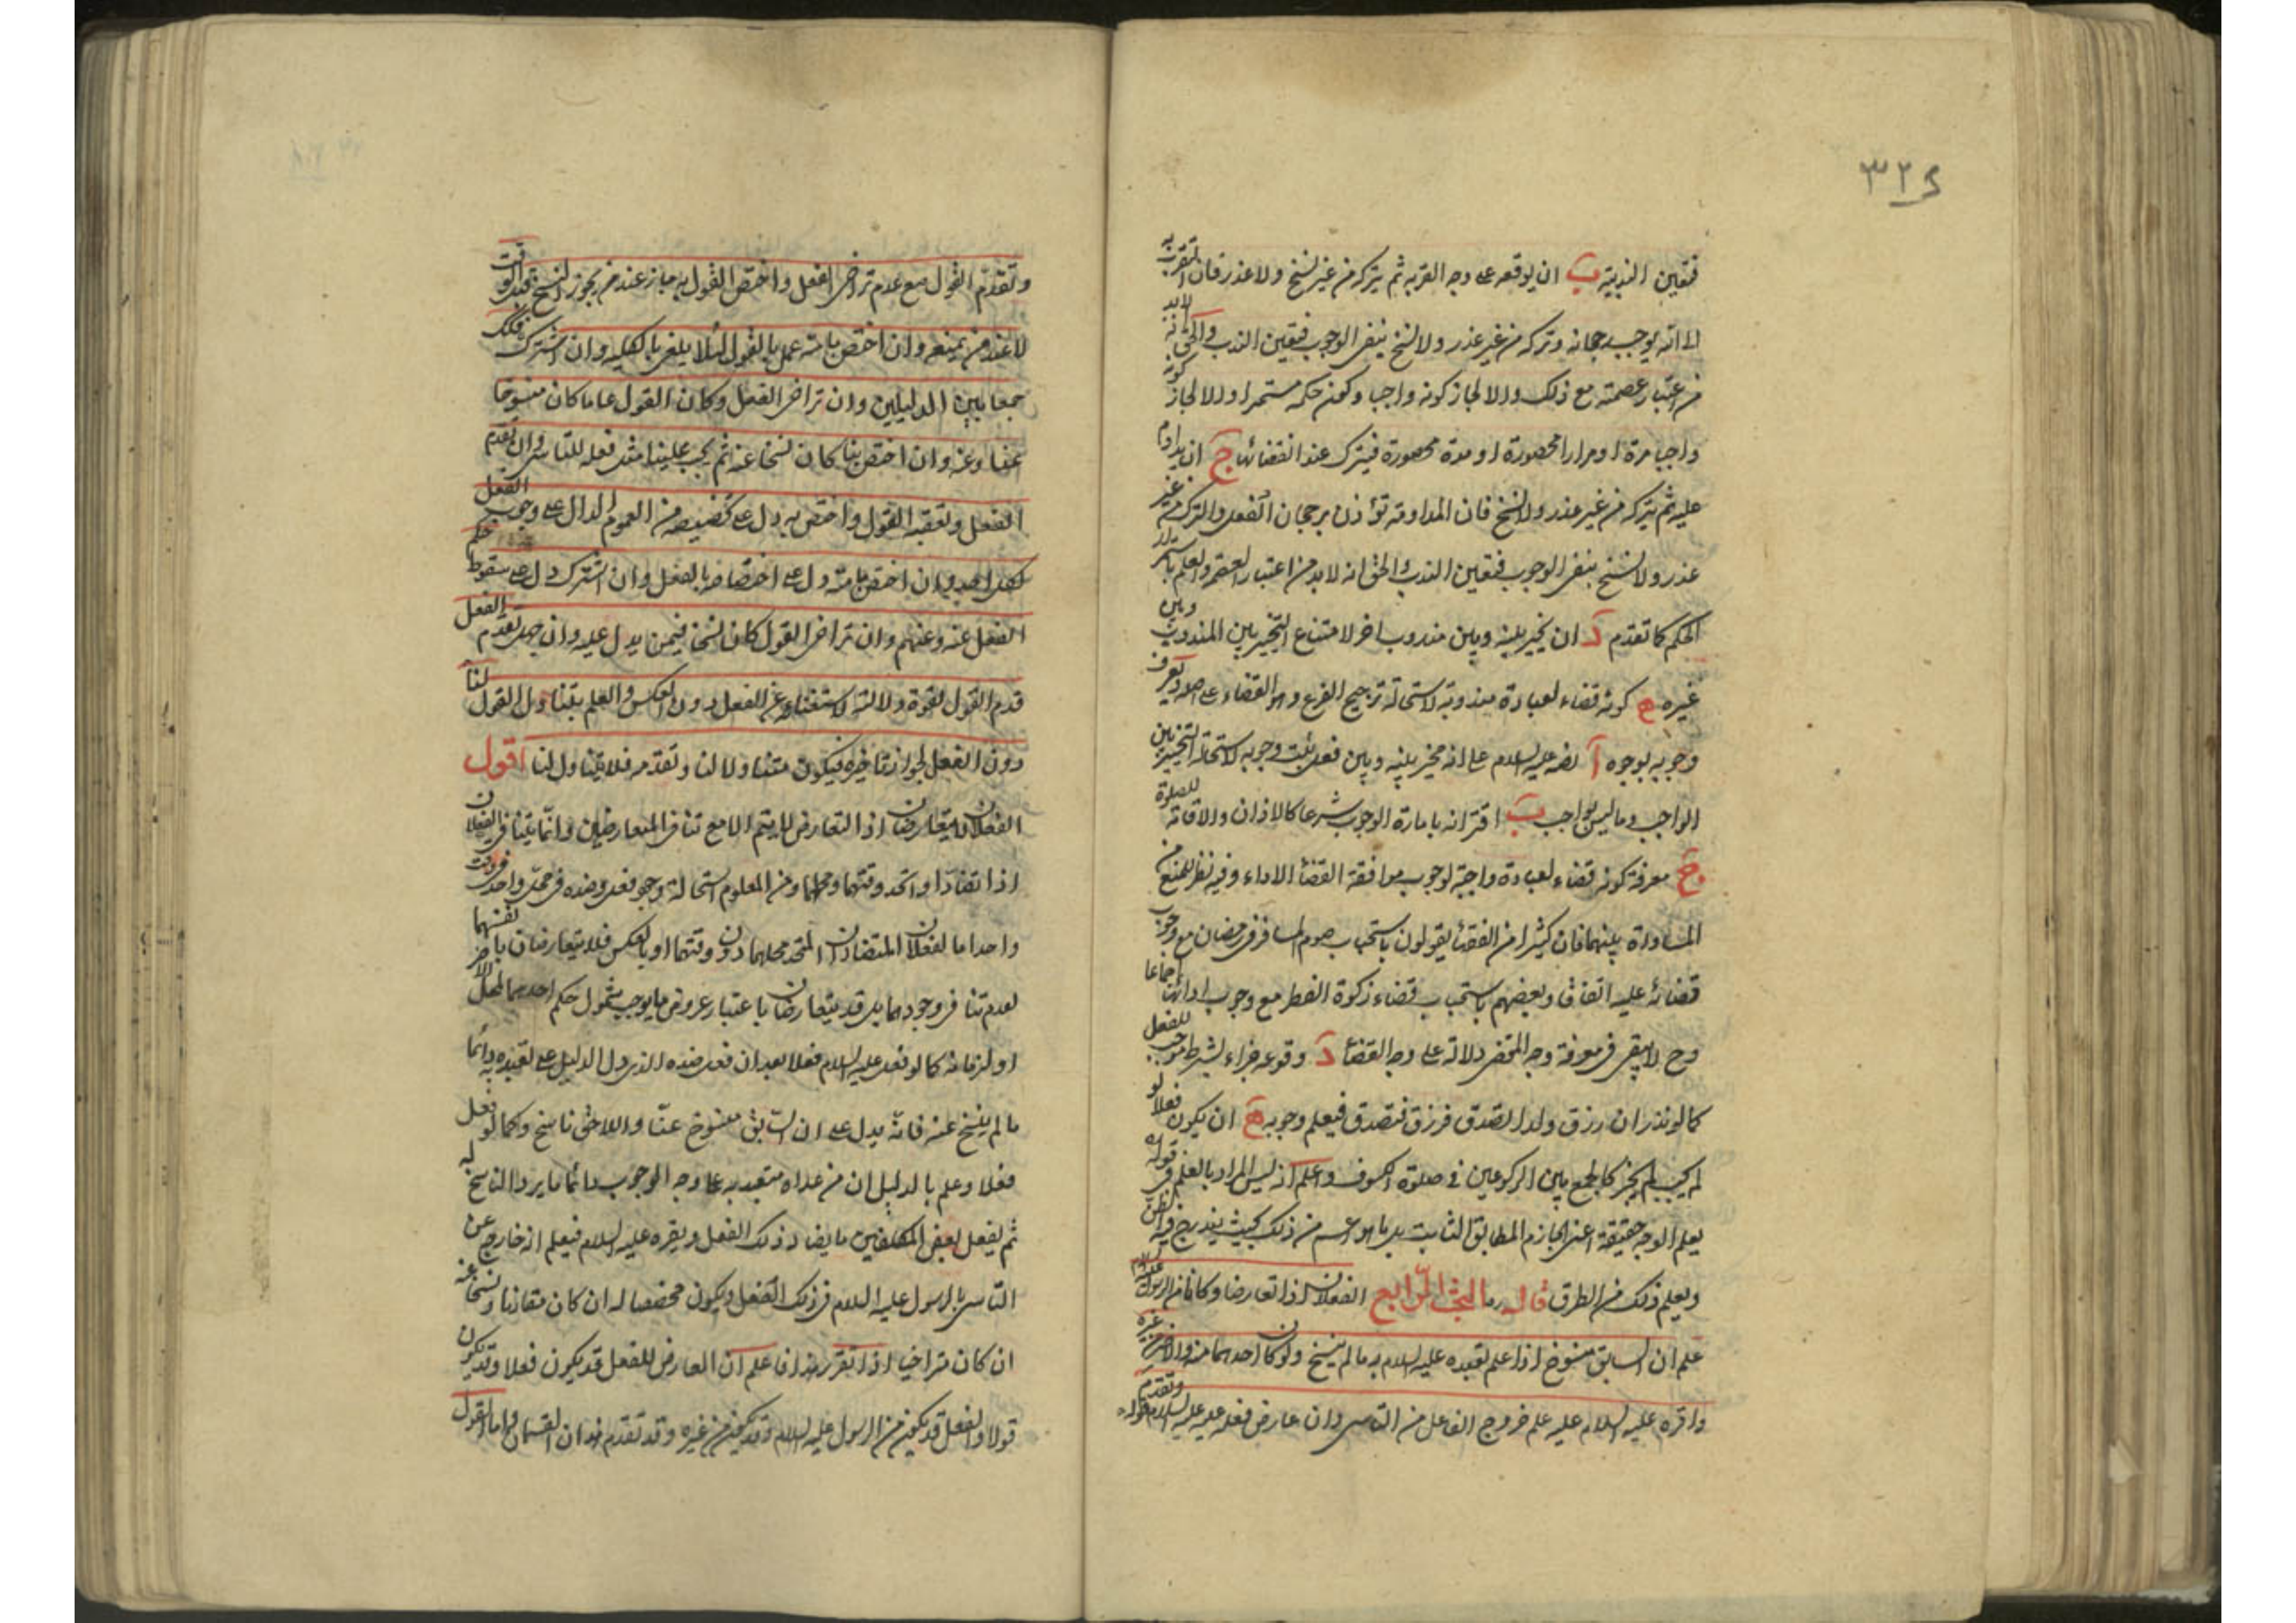 ٣٢٤
فتعين الندبية ب ان يوقعه على وجه القربة ثم يتركه من غير نسخ ولا عذر فان التقرب به
الا انه يوجب رجحانه وتركه من غير عذر ولا نسخ ينفى الوجوب فتعين الندب والحق انه لابد
من اعتبار عصمته مع ذلك والا لجاز كونه واجبا وكون حكمه مستمرا والا لجاز كونه
واجبا مرة او مرارا محصورة او مدة محصورة فيترك عند انقضائها ج ان يداوم
عليه ثم يتركه من غير عذر ولا نسخ فان المداومة تؤذن برجحان الفعل والترك من غير
عذر ولا نسخ ينفى الوجوب فتعين الندب والحق انه لابد من اعتبار العصمة والعلم باستمرار
الحكم كما تقدم د ان يخير بينه وبين مندوب اخر لامتناع التخيير بين المندوب وبين
غيره ه كونه قضاء لعبادة مندوبة لاستحالة ترجيح الفرع وهو القضاء على اصله ويعرف
وجوبه بوجوه آ نصه عليه السلام على انه مخير بينه وبين فعل يثبت وجوبه لاستحالة التخيير بين
الواجب وما ليس بواجب ب اقترانه بامارة الوجوب شرعا كالاذان والاقامة للصلوة
ج معرفة كونه قضاء لعبادة واجبة لوجوب موافقة القضا الاداء وفيه نظر للمنع من
المساواة بينهما فان كثيرا من الفقها يقولون باستحباب صوم المسافر فى رمضان مع وجوب
قضائه عليه اتفاقا وبعضهم باستحباب قضاء زكوة الفطر مع وجوب ادائها اجماعا
وح لا يبقى فى معرفة وجه المقضى دلالة على وجه القضا د وقوعه جزاء لشرط موجب للفعل
كما لو نذر ان رزق ولدا لتصدق فرزق فتصدق فيعلم وجوبه ه ان يكون فعلا لو
لم يجب لم يجز كالجمع بين الركوعين فى صلوة الكسوف واعلم انه ليس المراد بالعلم فى قوله
يعلم الوجه حقيقته اعنى الجازم المطابق الثابت بل ما هو اعم من ذلك بحيث يندرج فيه الظن
ويعلم ذلك من الطرق قال ره البحث الرابع الفعلان اذا تعارضا وكانا من الرسول عليه السلام
علم ان السابق منسوخ اذا علم تعبده عليه السلام به ما لم ينسخ ولو كان احدهما منه والاخر من غيره
واقره عليه السلام عليه علم خروج الفاعل من التاسى وان عارض فعله عليه السلام قوله وتقدم
وتقدم القول مع عدم تراخى الفعل واختص القول به جاز عند من يجوز النسخ قبل الوقت
لا عند من يمنعه وان اختص بامته عمل بالقول لئلا يلغى بالكلية وان اشترك فكذلك
جمعا بين الدليلين وان تراخى الفعل وكان القول عاما كان منسوخا
عنا وعنه وان اختص بنا كان نسخا عنا ثم يجب علينا مثل فعله للتاسى وان تقدم
الفعل وتعقبه القول واختص به دل على تخصيصه من العموم الدال على وجوب الفعل
لكل احد وان اختص بامته دل على اختصاصه بالفعل وان اشترك دل على سقوط حكم
الفعل عنه وعنهم وان تراخى القول كان نسخا فيمن يدل عليه وان جهل تقدم الفعل
قدم القول لقوة دلالته لاستغنائه عن الفعل دون العكس والعلم بتناول القول لنا
دون الفعل لجواز تأخيره فيكون متناولا لنا وتقدمه فلا يتناولنا اقول
الفعلان لا يتعارضان اذ التعارض لا يتم الا مع تنافى المتعارضين وانما يتنافى الفعلان
اذا تضادا واتحد وقتهما ومحلهما ومن المعلوم استحالة وجود فعل وضده فى محل واحد فى وقت
واحد اما الفعلان المتضادان المتحد محلهما دون وقتهما او بالعكس فلا يتعارضان بانفسهما
لعدم تنافى وجودهما بل قد يتعارضان باعتبار عروض ما يوجب شمول حكم احدهما لمحل الاخر
او لزمانه كما لو فعل عليه السلام فعلا بعد ان فعل ضده الذى دل الدليل على تعبده به دائما
ما لم ينسخ عنه فانه يدل على ان السابق منسوخ عنا واللاحق ناسخ وكما لو فعل
فعلا وعلم بالدليل ان من عداه متعبد به على وجه الوجوب دائما ما يرد الناسخ له
ثم يفعل بعض المكلفين ما يضاد ذلك الفعل ويقره عليه السلام فيعلم انه خارج عن
التاسى بالرسول عليه السلام فى ذلك الفعل ويكون مخصصا له ان كان مقارنا ونسخا عنه
ان كان متراخيا اذا تقرر هذا فاعلم ان العارض للفعل قد يكون فعلا وقد يكون
قولا والفعل قد يكون من الرسول عليه السلام وقد يكون من غيره وقد تقدم هذان القسمان واما القول